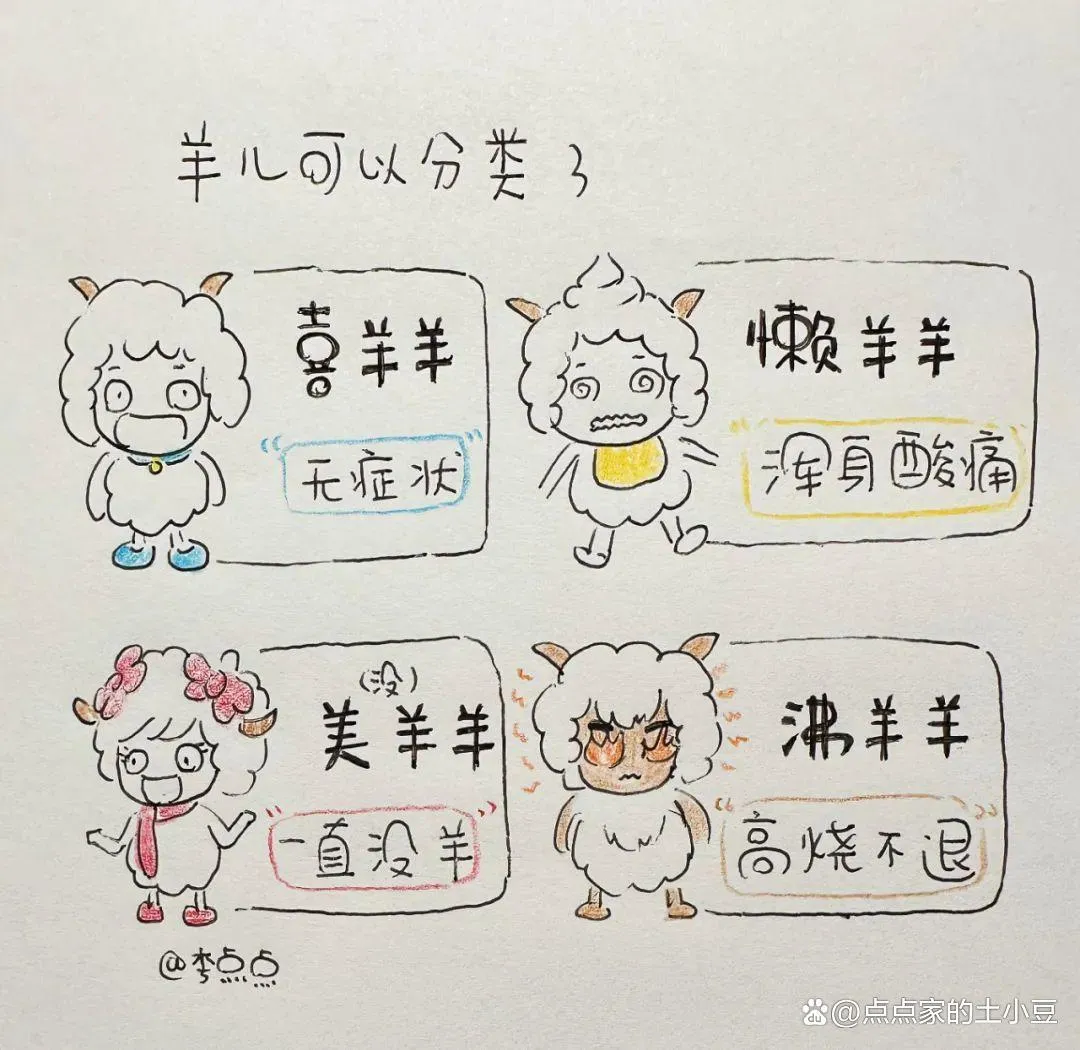 羊儿可以分类了
喜羊羊
"无症状"
懒羊羊
"浑身酸痛"
(没)
美羊羊
"一直没羊"
沸羊羊
"高烧不退"
@李点点
@点点家的土小豆